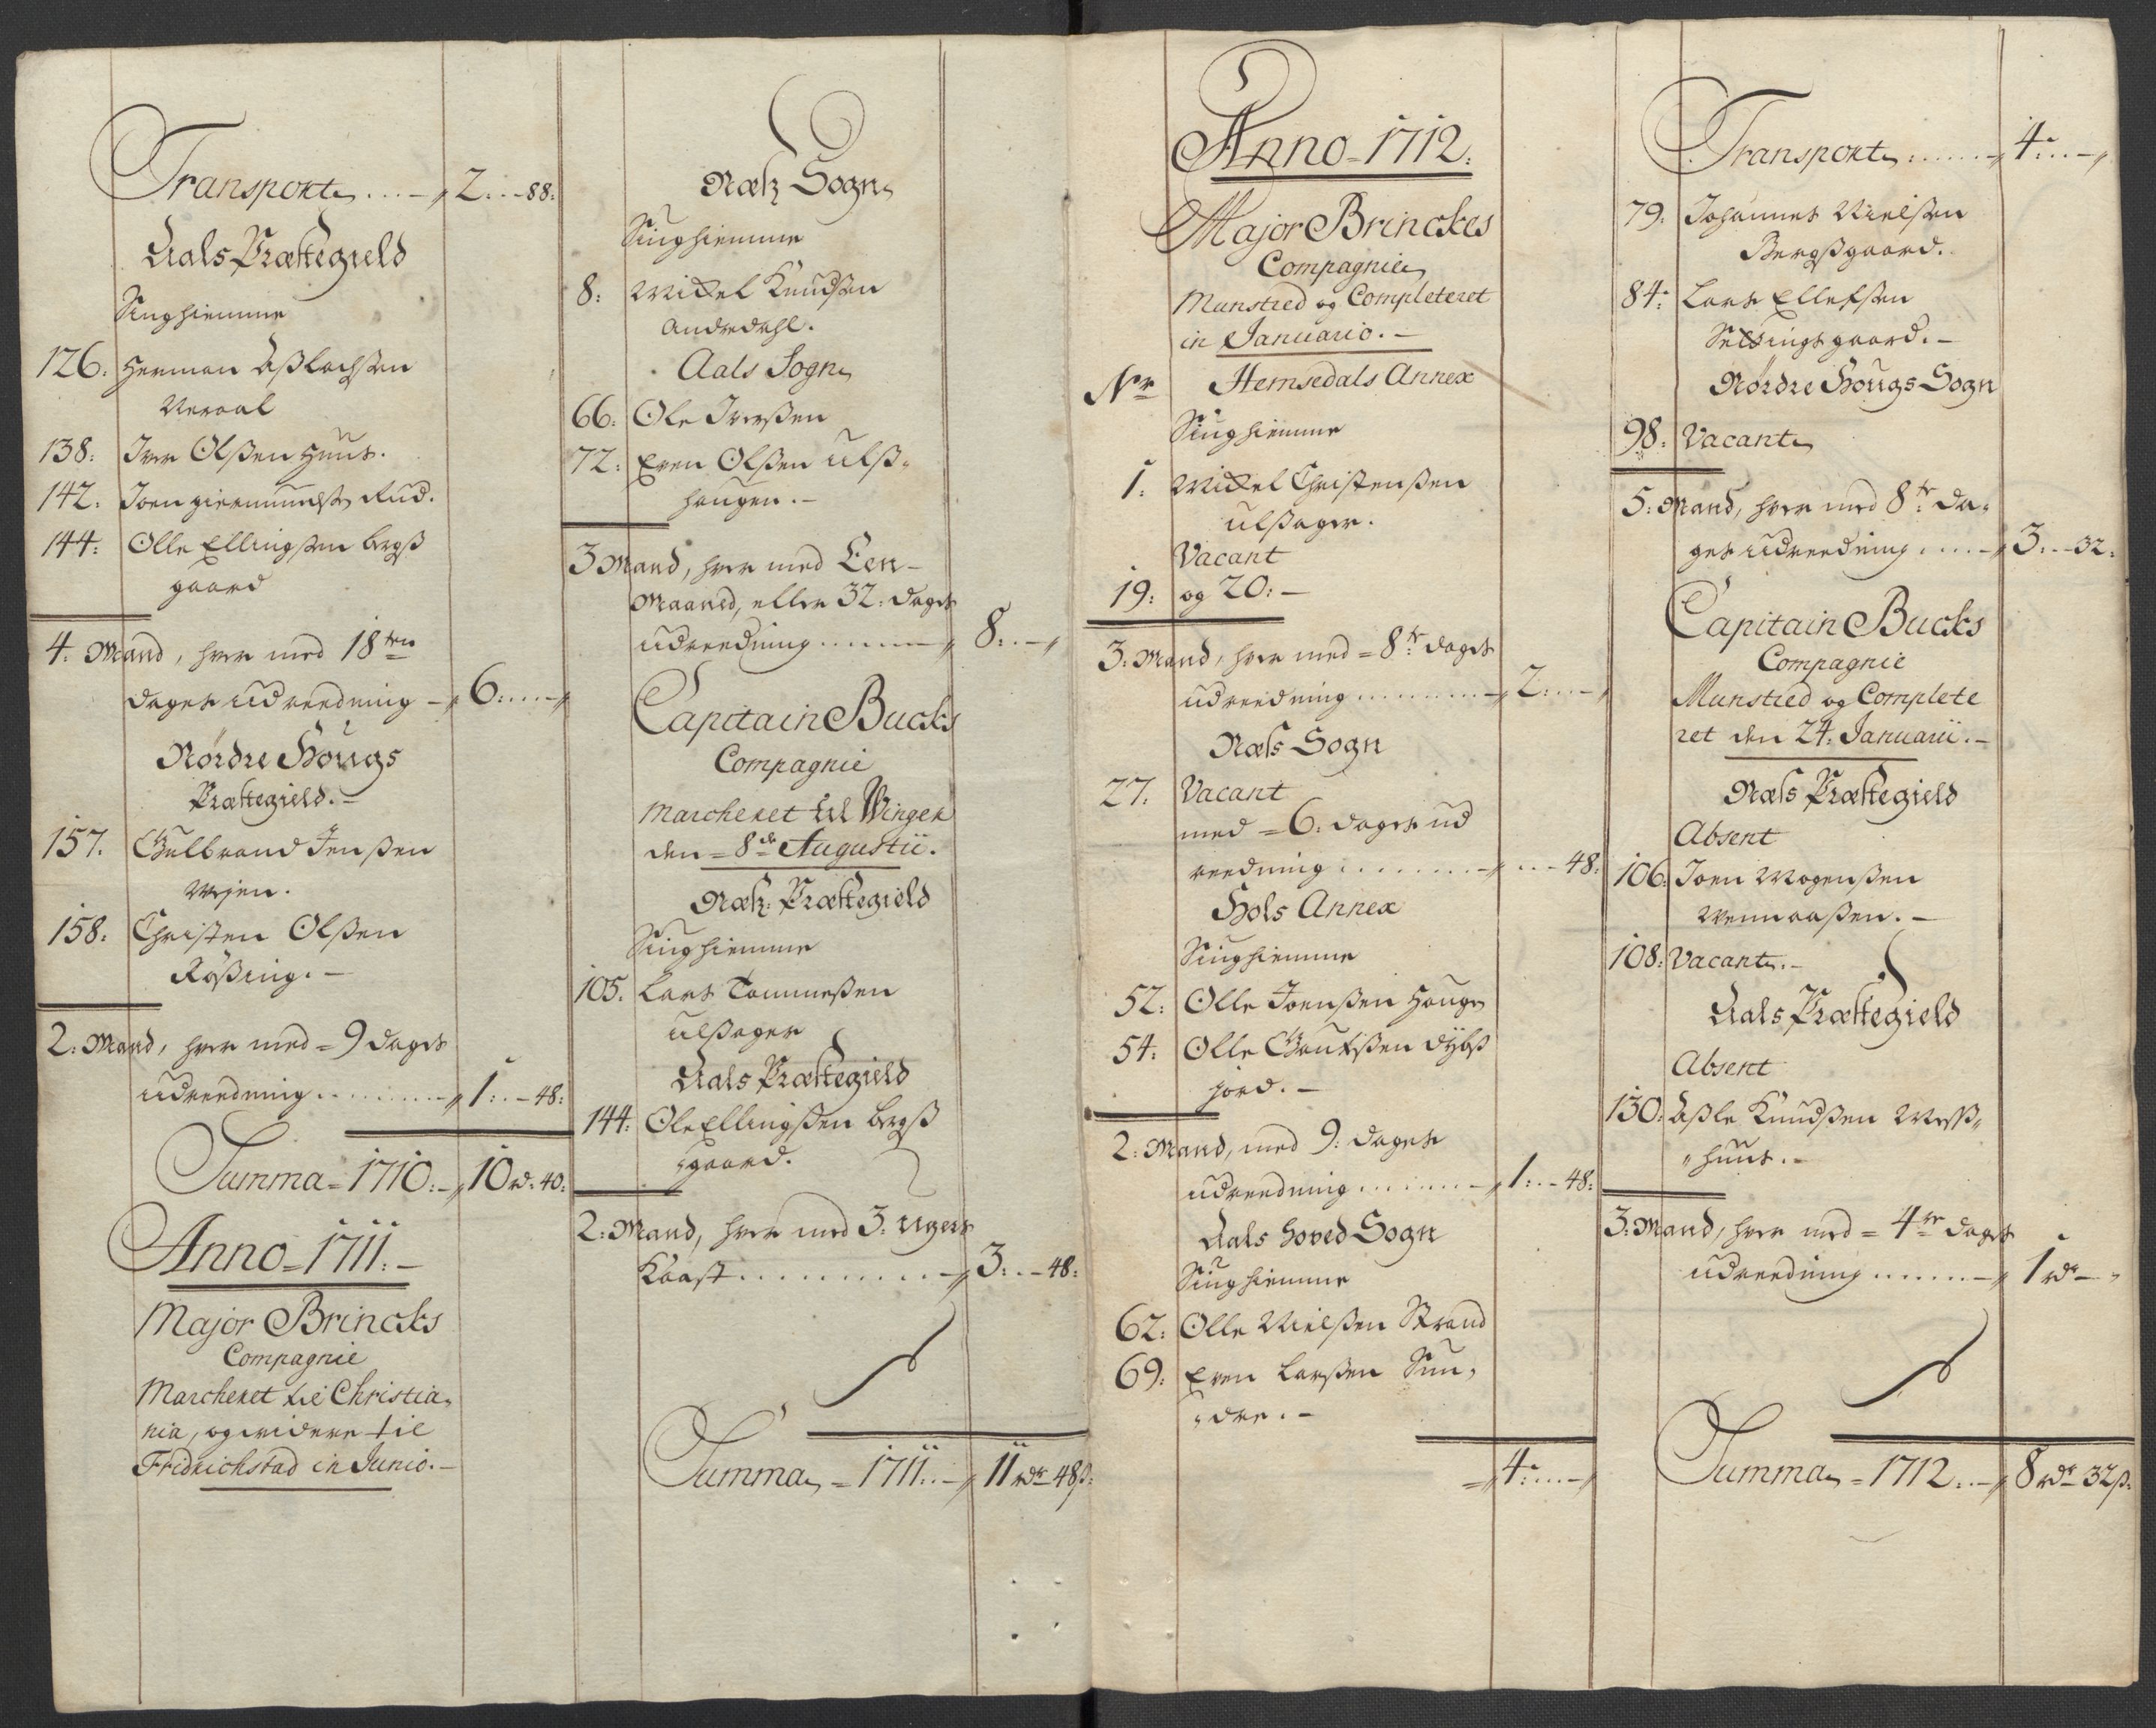 Transporte ....- 2...-88:
Aals Præstegield
Siughiemme
126: Herman Aslachsen
Veraal
138: Iver Olßen Huus.
142: Joen giermundß Rud.
144: Olle Ellingsen bergs
gaard
4. Mand, hver med 18ten
dages udreedning - 6:....-
Nórdre Hougs
Præstegield.-
157. Gulbrand Jenßen
158: Christen Olßen
2: Mand, hver med = 9 dages
udreedning ........- 1:..-48:
Summa = 1710:- 10 rd. 40:
Anno = 1711:-
Major Brincks
Compagnie
Marcheret til Christia,
nia, og videre til
Fridrichstad in Junio.-
Næs Sogn
Siughiemme
8: Mickel Knudsen
Andredahl.
Aals Sogn
66: Ole Iverßen
72: Even Olßen Ulß,
haugen.-
3 Mand, hver med Een-
Maaned, eller 32: dages
udreedning ......- 8:..-
Capitain Bucks
Compagnie
Marcheret til Winger
den = 8de Augustii.
Næs Præstegield
Siughiemme
105. Lars Tommesen
Ulsager
Aals Præstegield
144: Ole Ellingßen bergß
gaard.
2: Mand, hver med 3: ugers
Kaast .........- 3:..-48:
Summa = 1711:.- 11 rdr 48ß:
Anno = 1712.
Major Brinckes
Compagnie
Munstred og Completeret
in Januario.-
Nr Hemsedals Annex
Siughiemme
1: Mickel Christenßen
Ulßager.
Vacant
19: og 20:-
3: Mand, hver med = 8te dages
udreedning ........- 2:...-
Næss Sogn
27. Vacant
med = 6: dages ud
reedning ........- ...-48:
Hols Annex
Siughiemme
52: Olle Joenßen Houge
54: Olle Gautßen dybs
jord.-
2: Mand, med 9: dages
udreedning ......- 1:..-48:
Aals Hoved Sogn
Siughiemme
62: Olle Nielßen Strand
69: Even Larßen Sun,
dre.-
= 4:....-
Transporte ......- 4:...-
79: Johannes Nielsen
Bergsgaard.
84: Lars Ellefsen
gaard.-
Nórdre Hougs Sogn
98: Vacant
5: Mand, hver med 8te da,
ges udreedning ....- 3:..-32:
Capitain Bucks
Compagnie
Munstred og Complete
ret den 24: Januarii.-
Næss Præstegield
Absent
106: Joen Mogenßen
108: Vacant.-
Aals Præstegield
Absent
130: Aßle Knudßen
huus.-
3: Mand, hver med = 4re dages
udreedning ......- 1 rdr -
Summa = 1712:.- 8 rdr 32ß.